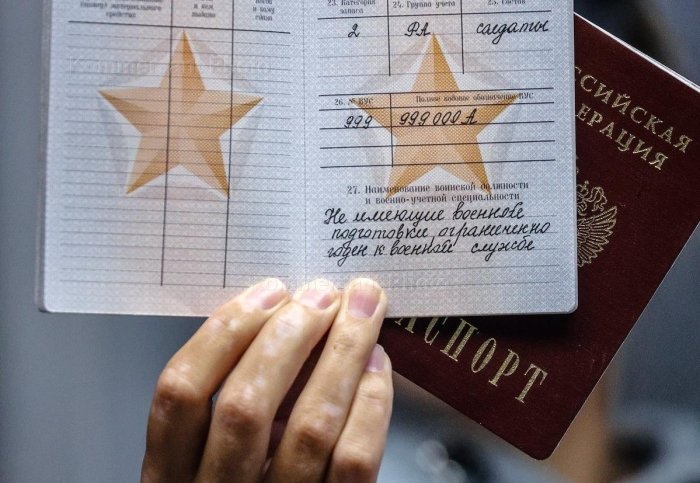 (номер) материального средства
и кем выдано
и кому сдано
23. Категория запаса
24. Группа учета
25. Состав
2
РА
солдаты
26. № ВУС
Полное кодовое обозначение ВУС
999
999000А
27. Наименование воинской должности
и военно-учетной специальности
Не имеющие военной
подготовки, ограниченно
годен к военной службе
РОССИЙСКАЯ
ФЕДЕРАЦИЯ
ПАСПОРТ